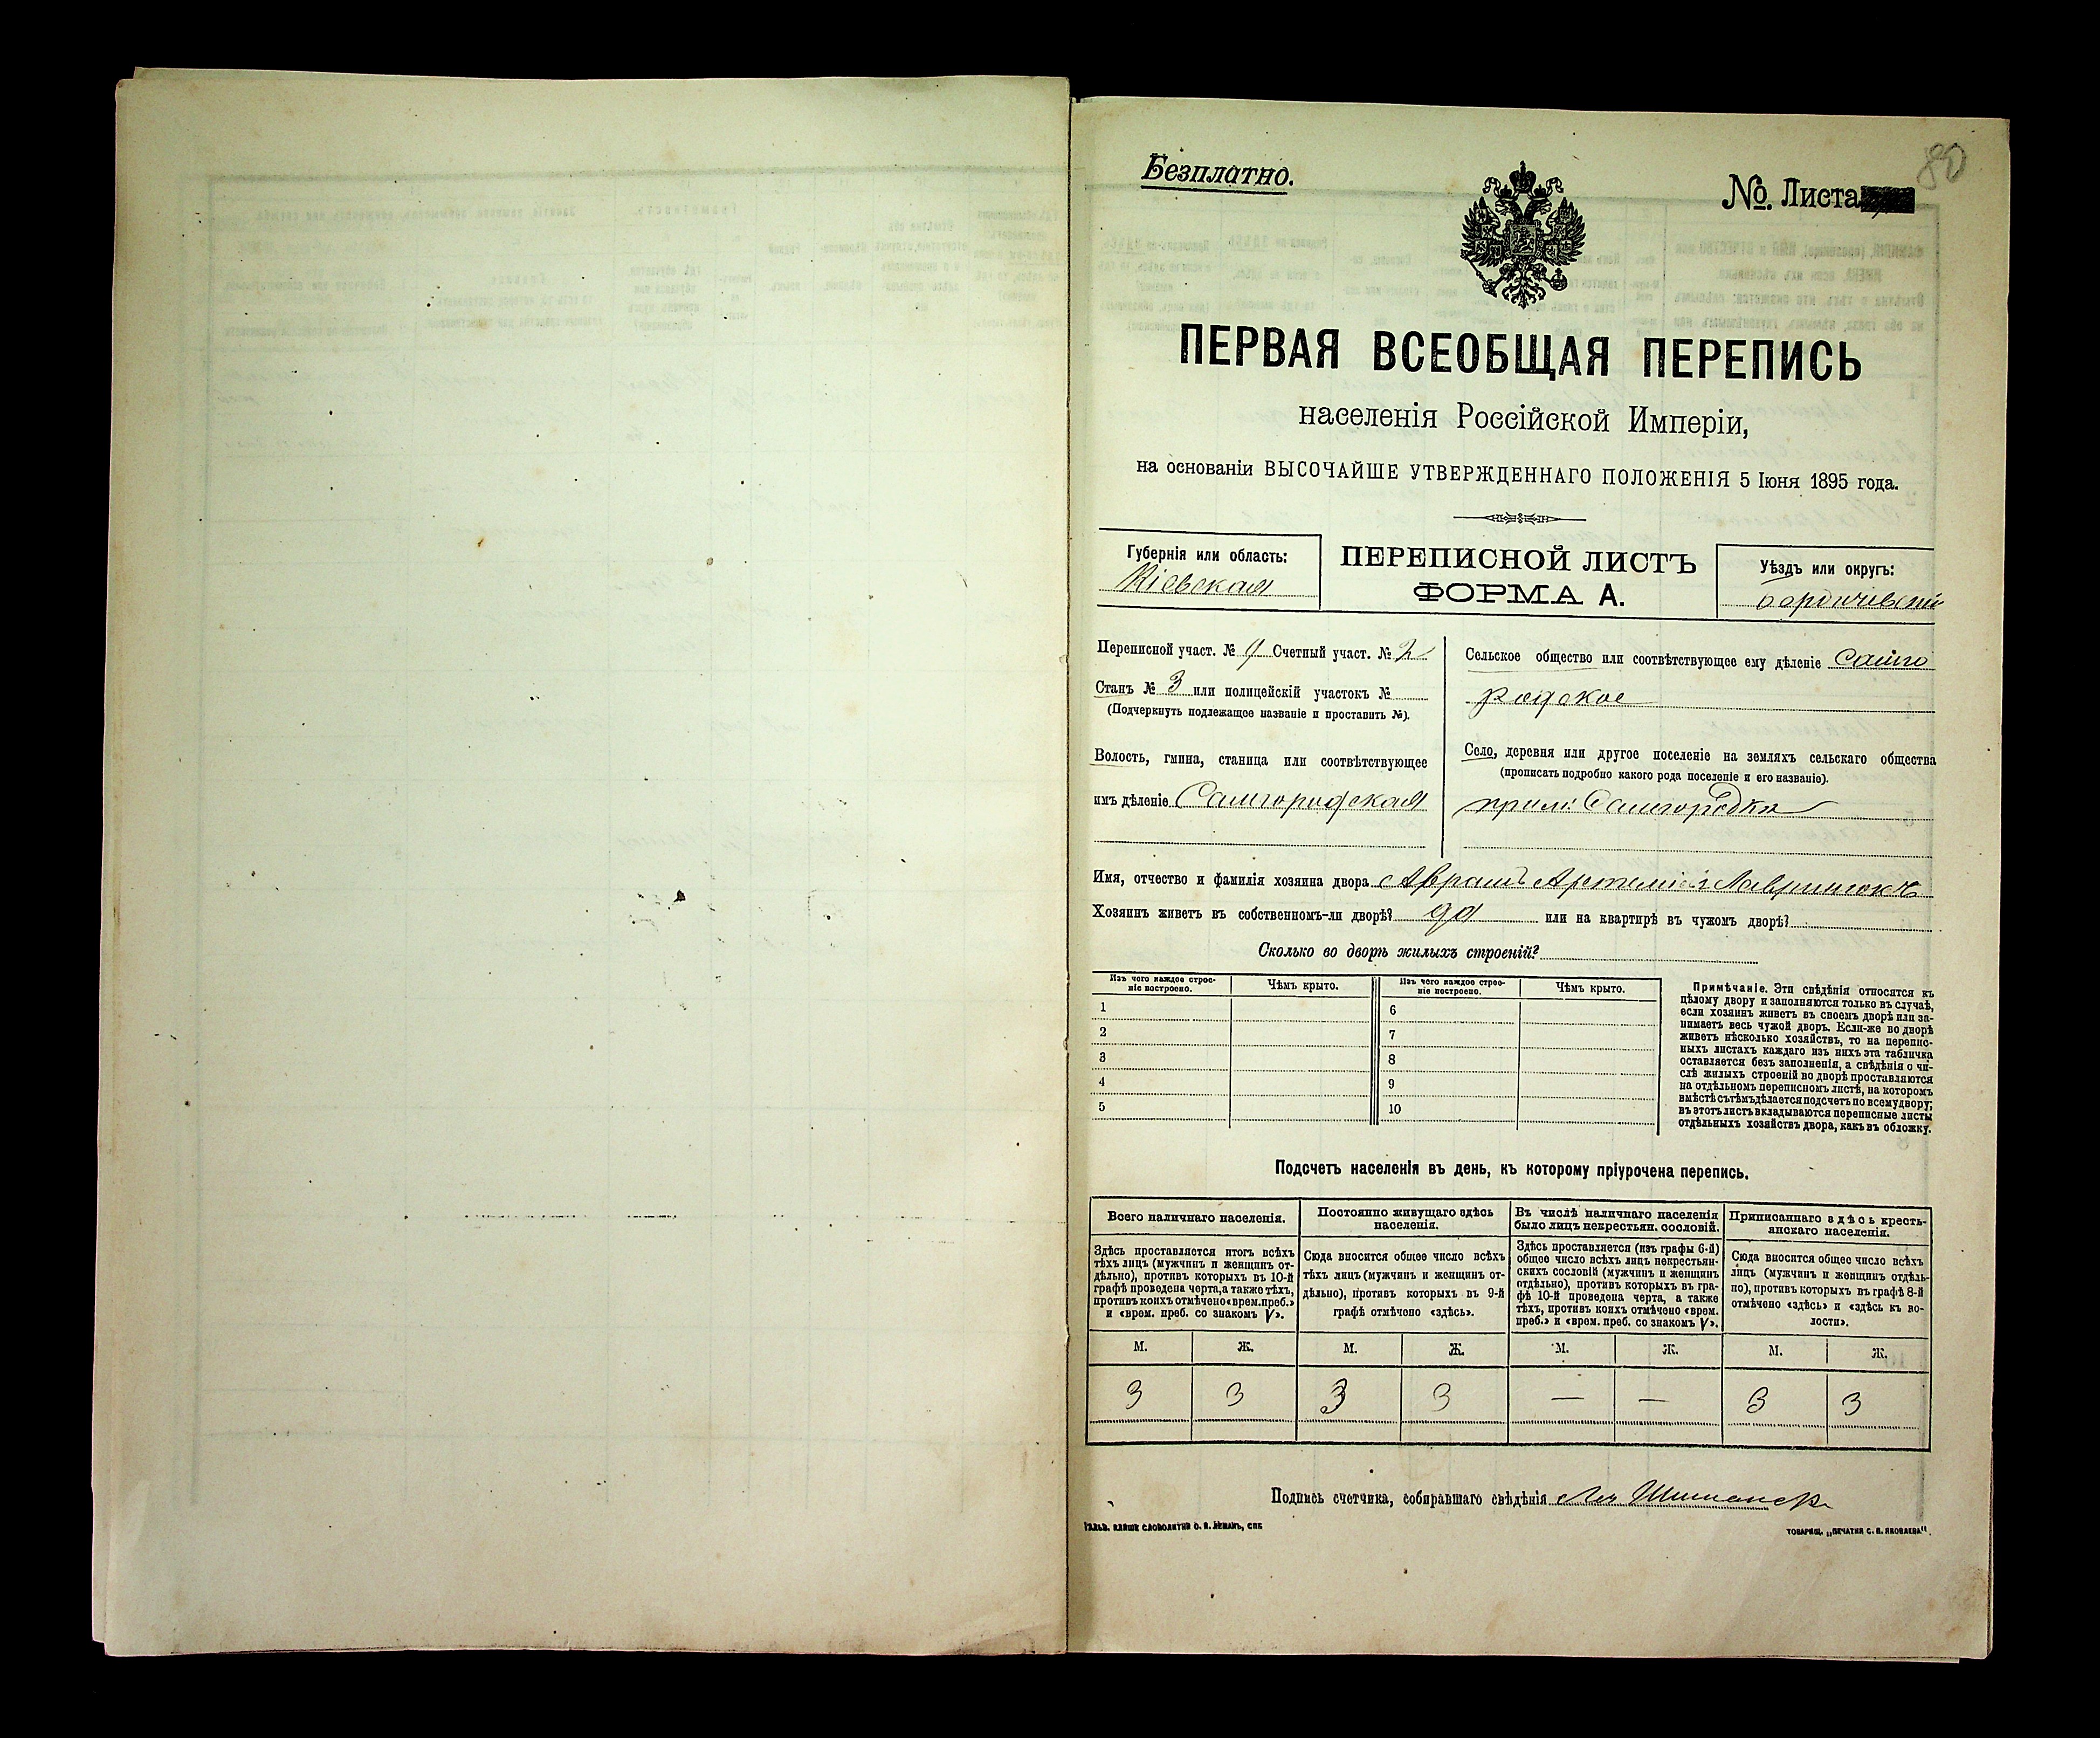 80
Безплатно.
№. Листа
ПЕРВАЯ ВСЕОБЩАЯ ПЕРЕПИСЬ
населенія Россійской Имперіи,
на основаніи ВЫСОЧАЙШЕ УТВЕРЖДЕННАГО ПОЛОЖЕНІЯ 5 Іюня 1895 года.
Губернія или область:
Кіевская
ПЕРЕПИСНОЙ ЛИСТЪ
ФОРМА А.
Уѣздъ или округъ:
Переписной участ. № Счетный участ. № 2
Станъ № 3 или полицейскій участокъ №
(Подчеркнуть подлежащее названіе и проставить №).
Волость, гмина, станица или соотвѣтствующее
имъ дѣленіе Самгородская
Сельское общество или соотвѣтствующее ему дѣленіе Самго
родское
Село, деревня или другое поселеніе на земляхъ сельскаго общества
(прописать подробно какого рода поселеніе и его названіе).
Самгородка
Имя, отчество и фамилія хозяина двора Аврамъ Лавринюкъ
Хозяинъ живетъ въ собственномъ-ли дворѣ? да или на квартирѣ въ чужомъ дворѣ?
Сколько во дворѣ жилыхъ строеній?
Изъ чего каждое строе-
ніе построено.
Чѣмъ крыто.
Изъ чего каждое строе-
ніе построено.
Чѣмъ крыто.
1 6
2 7
3 8
4 9
5 10
Примѣчаніе. Эти свѣдѣнія относятся къ
цѣлому двору и заполняются только въ случаѣ,
если хозяинъ живетъ въ своемъ дворѣ или за-
нимаетъ весь чужой дворъ. Если-же во дворѣ
живетъ нѣсколько хозяйствъ, то на перепис-
ныхъ листахъ каждаго изъ нихъ эта табличка
оставляется безъ заполненія, а свѣдѣнія о чи-
слѣ жилыхъ строеній во дворѣ проставляются
на отдѣльномъ переписномъ листѣ, на которомъ
вмѣстѣ съ тѣмъ дѣлается подсчетъ по всему двору;
въ этотъ листъ вкладываются переписные листы
отдѣльныхъ хозяйствъ двора, какъ въ обложку.
Подсчетъ населенія въ день, къ которому пріурочена перепись.
Всего наличнаго населенія.
Здѣсь проставляется итогъ всѣхъ
тѣхъ лицъ (мужчинъ и женщинъ от-
дѣльно), противъ которыхъ въ 10-й
графѣ проведена черта, а также тѣхъ,
противъ коихъ отмѣчено «врем. преб.»
и «врем. преб. со знакомъ V».
Постоянно живущаго здѣсь
населенія.
Сюда вносится общее число всѣхъ
тѣхъ лицъ (мужчинъ и женщинъ от-
дѣльно), противъ которыхъ въ 9-й
графѣ отмѣчено «здѣсь».
Въ числѣ наличнаго населенія
было лицъ некрестьян. сословій.
Здѣсь проставляется (изъ графы 6-й)
общее число всѣхъ лицъ некрестьян-
скихъ сословій (мужчинъ и женщинъ
отдѣльно), противъ которыхъ въ гра-
фѣ 10-й проведена черта, а также
тѣхъ, противъ коихъ отмѣчено «врем.
преб.» и «врем. преб. со знакомъ V».
Приписаннаго здѣсь кресть-
янскаго населенія.
Сюда вносится общее число всѣхъ
лицъ (мужчинъ и женщинъ отдѣль-
но), противъ которыхъ въ графѣ 8-й
отмѣчено «здѣсь» и «здѣсь къ во-
лости».
М. Ж. М. Ж. М. Ж. М. Ж.
3 3 3 3 — — 3 3
Подпись счетчика, собиравшаго свѣдѣнія
ТОВАРИЩ. „ПЕЧАТНЯ С. П. ЯКОВЛЕВА".